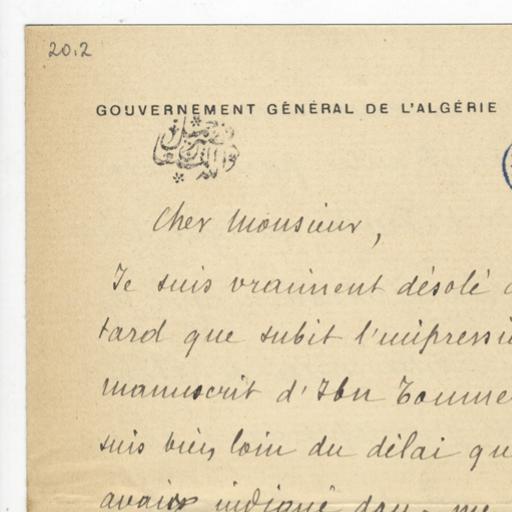 20.2
GOUVERNEMENT GÉNÉRAL DE L'ALGÉRIE
Cher Monsieur,
Je suis vraiment désolé
tard que subit l'impressi
manuscrit d'Ibn Toume
suis bien loin du délai qu
avais indiqué dans me